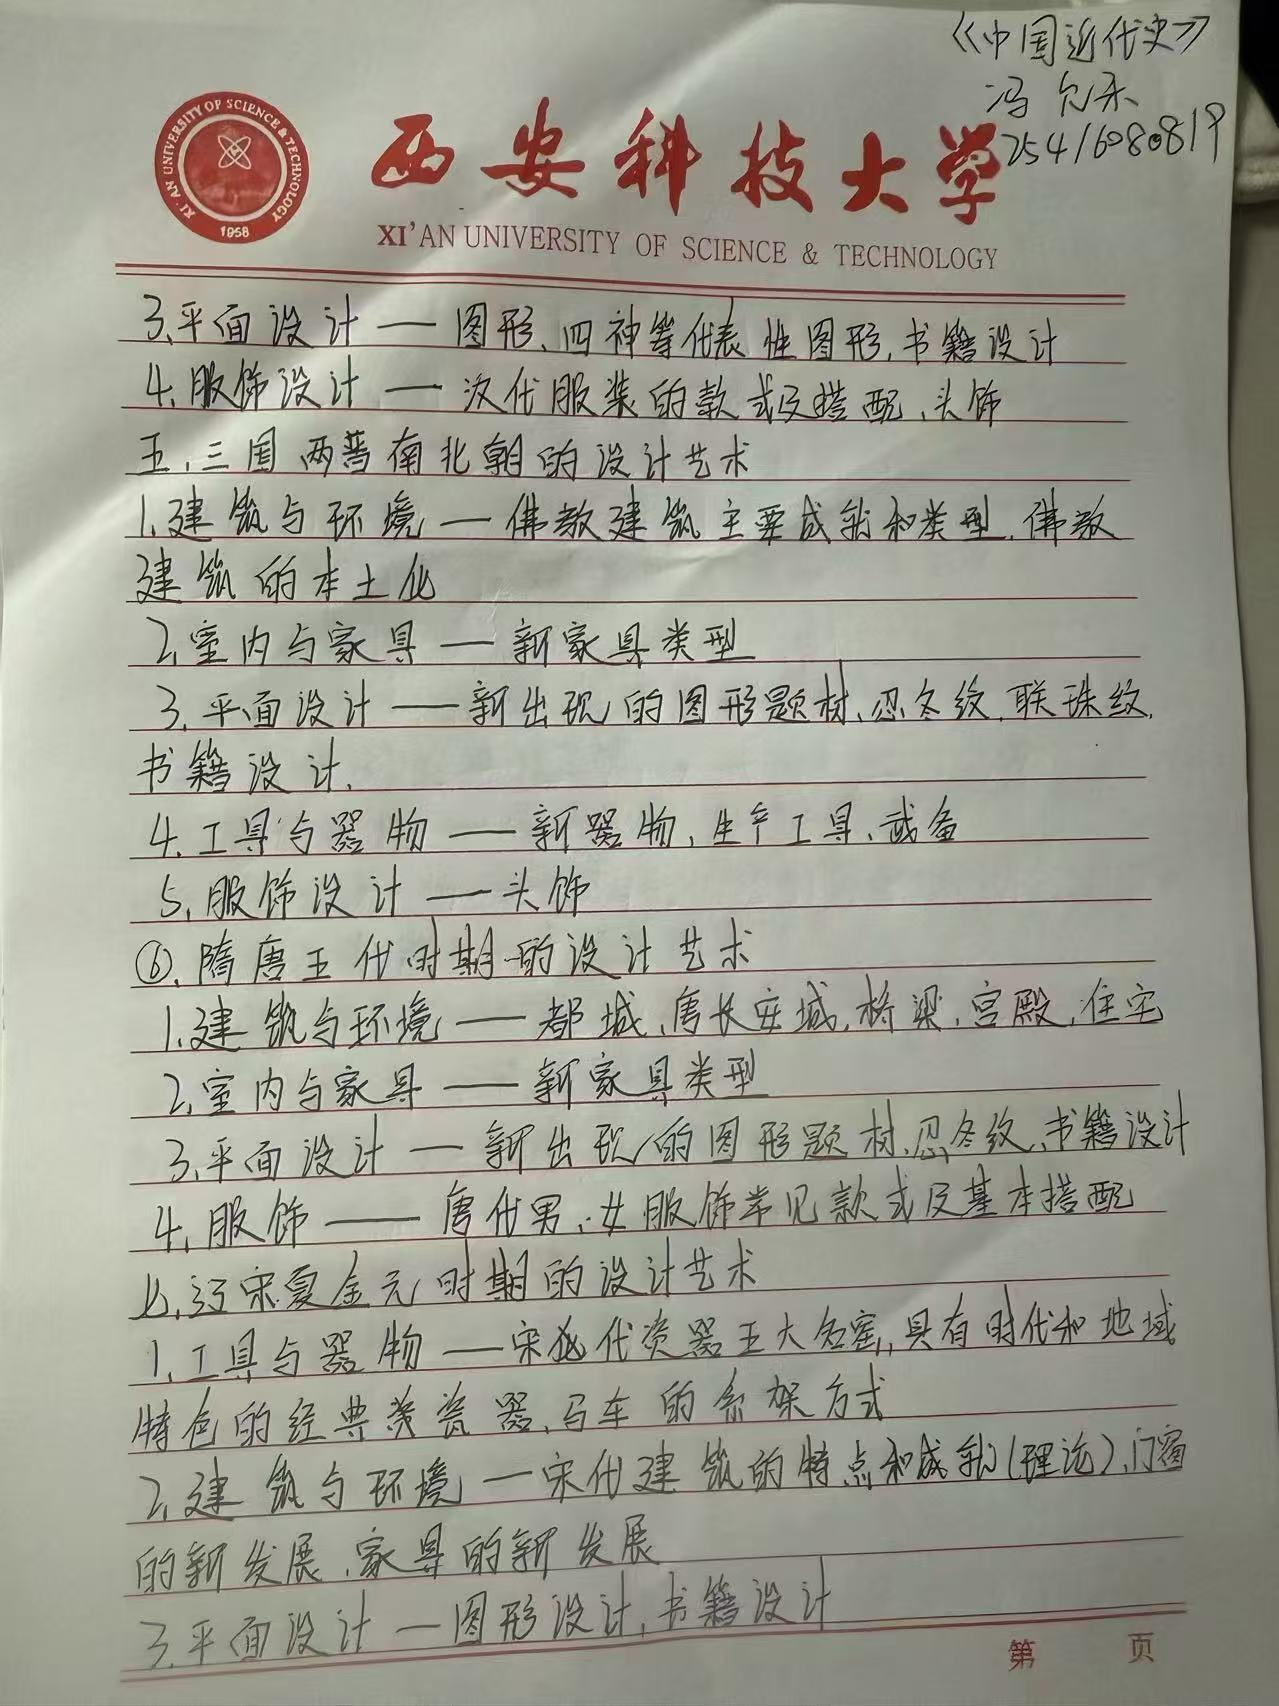 《中国近代史》
冯允禾
25416080819
XI'AN UNIVERSITY OF SCIENCE & TECHNOLOGY
1958
西安科技大学
XI'AN UNIVERSITY OF SCIENCE & TECHNOLOGY
3、平面设计 — 图形、四神等代表性图形,书籍设计
4、服饰设计 — 汉代服装的款式及搭配、头饰
五、三国两晋南北朝的设计艺术
1、建筑与环境 — 佛教建筑主要成就和类型、佛教
建筑的本土化
2、室内与家具 — 新家具类型
3、平面设计 — 新出现的图形题材、忍冬纹、联珠纹、
书籍设计、
4、工具与器物 — 新器物、生产工具、武备
5、服饰设计 — 头饰
⑥、隋唐五代时期的设计艺术
1、建筑与环境 — 都城、唐长安城、桥梁、宫殿、住宅
2、室内与家具 — 新家具类型
3、平面设计 — 新出现的图形题材、忍冬纹、书籍设计
4、服饰 — 唐代男、女服饰常见款式及基本搭配
七、辽宋夏金元时期的设计艺术
1、工具与器物 — 宋代瓷器五大名窑,具有时代和地域
特色的经典类瓷器、马车的系架方式
2、建筑与环境 — 宋代建筑的特点和成就(理论)、门窗
的新发展、家具的新发展
3、平面设计 — 图形设计、书籍设计
第 页